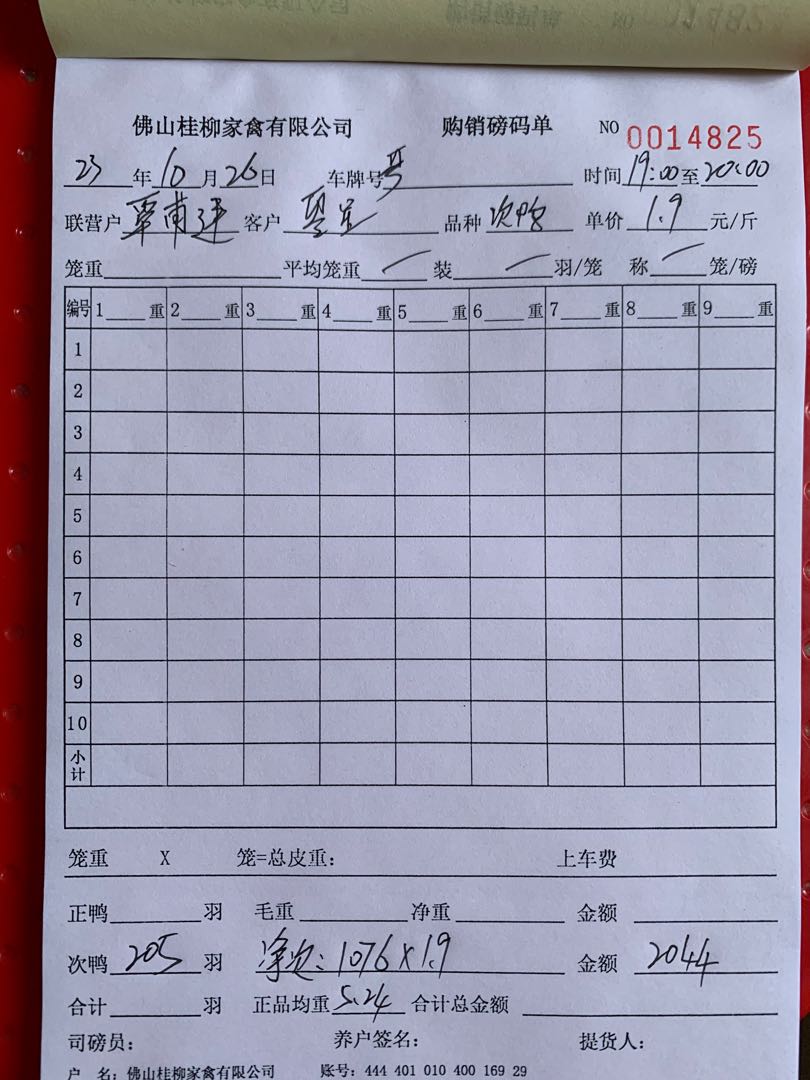 佛山桂柳家禽有限公司 购销磅码单 NO 0014825
23 年 10 月 26 日 车牌号 时间 19:00 至 20:00
联营户 覃甫连 客户 品种 次鸭 单价 1.9 元/斤
笼重 平均笼重 / 装 / 羽/笼 称 / 笼/磅
编号 1 重 2 重 3 重 4 重 5 重 6 重 7 重 8 重 9 重
1
2
3
4
5
6
7
8
9
10
小计
笼重 X 笼=总皮重: 上车费
正鸭 羽 毛重 净重 金额
次鸭 205 羽 净次: 1076 X 1.9 金额 2044
合计 羽 正品均重 5.24 合计总金额
司磅员: 养户签名: 提货人:
户 名: 佛山桂柳家禽有限公司 账号: 444 401 010 400 169 29